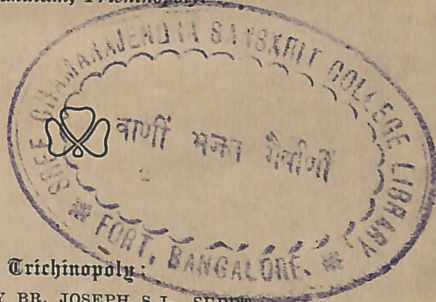 Trichinopoly.
SREE CHAMARAJENDRA SANSKRIT COLLEGE LIBRARY
वाणीं भजत गैर्वाणीं
* FORT, BANGALORE. *
Trichinopoly:
BR. JOSEPH S.J.,